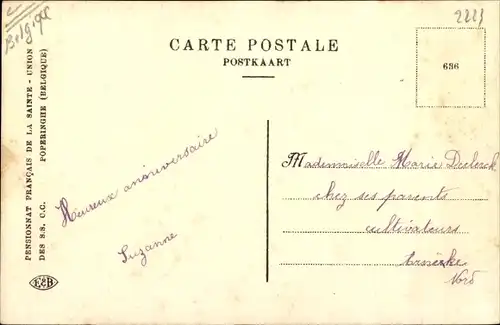 Belgique
2223
CARTE POSTALE
POSTKAART
636
PENSIONNAT FRANÇAIS DE LA SAINTE - UNION
DES S.S. C.C. POPERINGHE (BELGIQUE)
Heureux anniversaire
Suzanne
Mademoiselle Marie Declerck
chez ses parents
cultivateurs
Arnèke
Nord